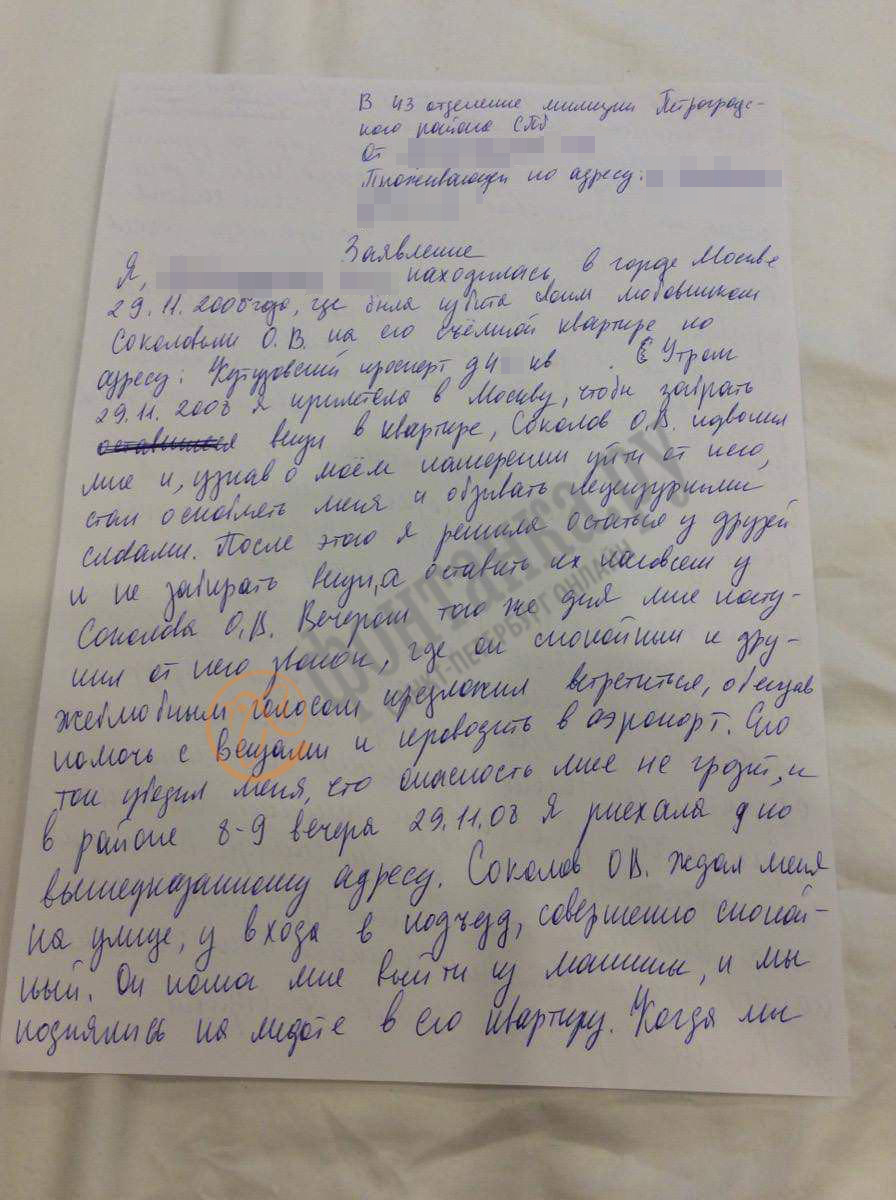 В 43 отделение милиции Петроградс-
кого района СПб
От
Проживающей по адресу:
Заявление
Я, находилась в городе Москве
29.11.2008 года, где была избита своим любовником
Соколовым О.В. на его съёмной квартире по
адресу: Кутузовский проспект д4 кв . Утром
29.11.2008 Я прилетела в Москву, чтобы забрать
вещи в квартире, Соколов О.В. позвонил
мне и, узнав о моём намерении уйти от него,
стал оскоблять меня и обзывать нецензурными
словами. После этого я решила остаться у друзей
и не забирать вещи, а оставить их насовсем у
Соколова О.В. Вечером того же дня мне посту-
пил от него звонок, где он спокойным и дру-
желюбным голосом предложил встретиться, обещав
помочь с вещами и проводить в аэропорт. Его
тон убедил меня, что опасность мне не грозит, и
в районе 8-9 вечера 29.11.08 Я приехала по
вышеуказанному адресу. Соколов О.В. ждал меня
на улице, у входа в подъезд, совершенно спокой-
ный. Он помог мне выйти из машины, и мы
поднялись на лифте в его квартиру. Когда мы
фонтанка.ру
САНКТ-ПЕТЕРБУРГ ОНЛАЙН